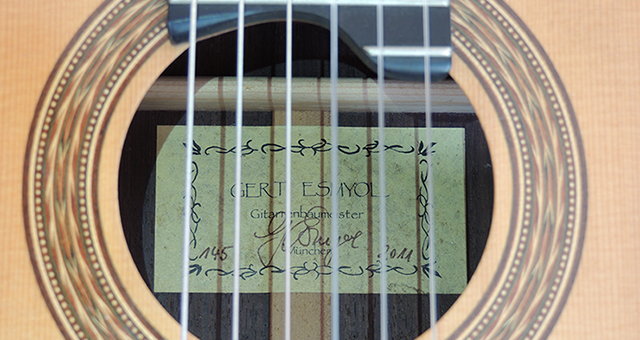 GERT ESMYOL
Gitarrenbaumeister
145 München 2011